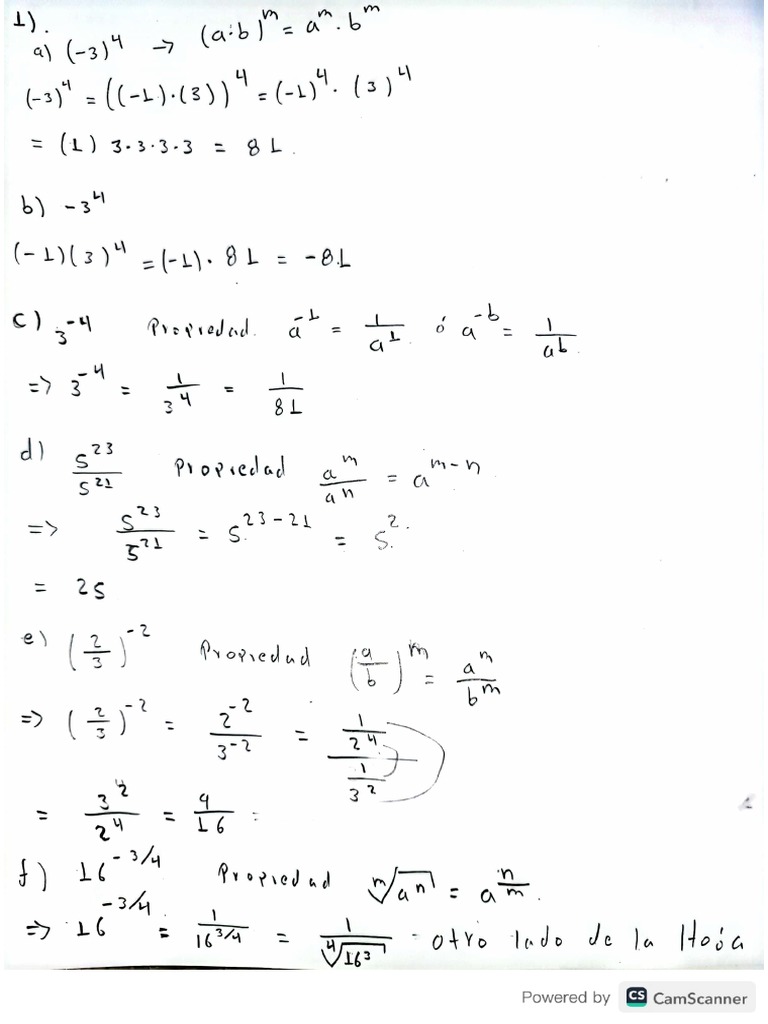 1).
a) (-3)^4 → (a·b)^m = a^m · b^m
(-3)^4 = ((-1)·(3))^4 = (-1)^4 · (3)^4
= (1) 3·3·3·3 = 81.
b) -3^4
(-1)(3)^4 = (-1)· 81 = -81
c) 3^-4 Propiedad. a^-1 = 1/a^1 ó a^-b = 1/a^b
=> 3^-4 = 1/3^4 = 1/81
d) 5^23/5^21 Propiedad a^m/a^n = a^m-n
=> 5^23/5^21 = 5^23-21 = 5^2.
= 25
e) (2/3)^-2 Propiedad (a/b)^m = a^m/b^m
=> (2/3)^-2 = 2^-2/3^-2 = (1/2^4)/(1/3^2)
= 3^2/2^4 = 9/16 =
f) 16^-3/4 Propiedad ᵐ√a^n = a^n/m.
=> 16^-3/4 = 1/16^3/4 = 1/⁴√16^3 - otro lado de la Hoja
Powered by CS CamScanner